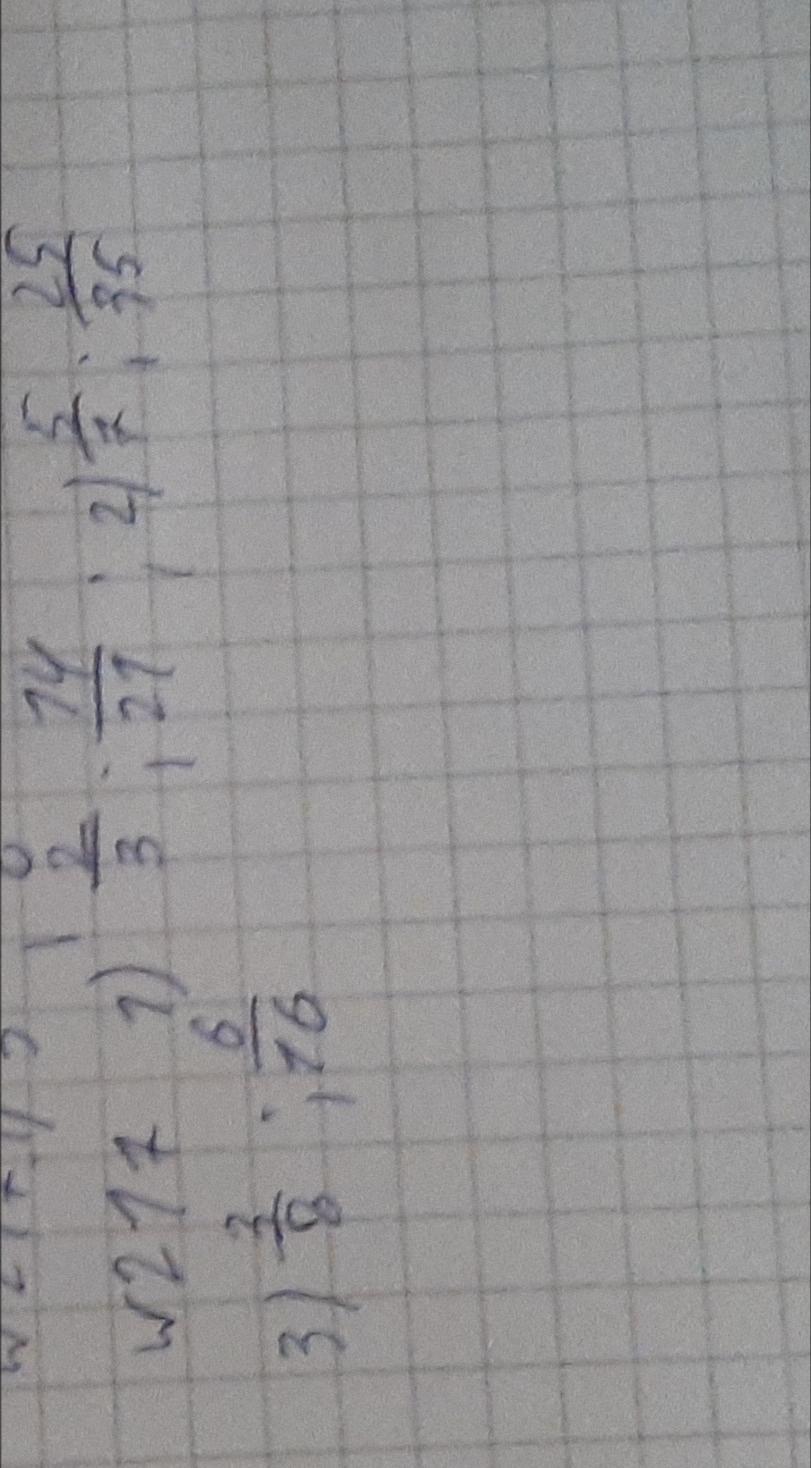 w217 1) 2/3 ; 14/21 ; 2) 5/7 ; 25/35
3) 3/8 ; 6/16